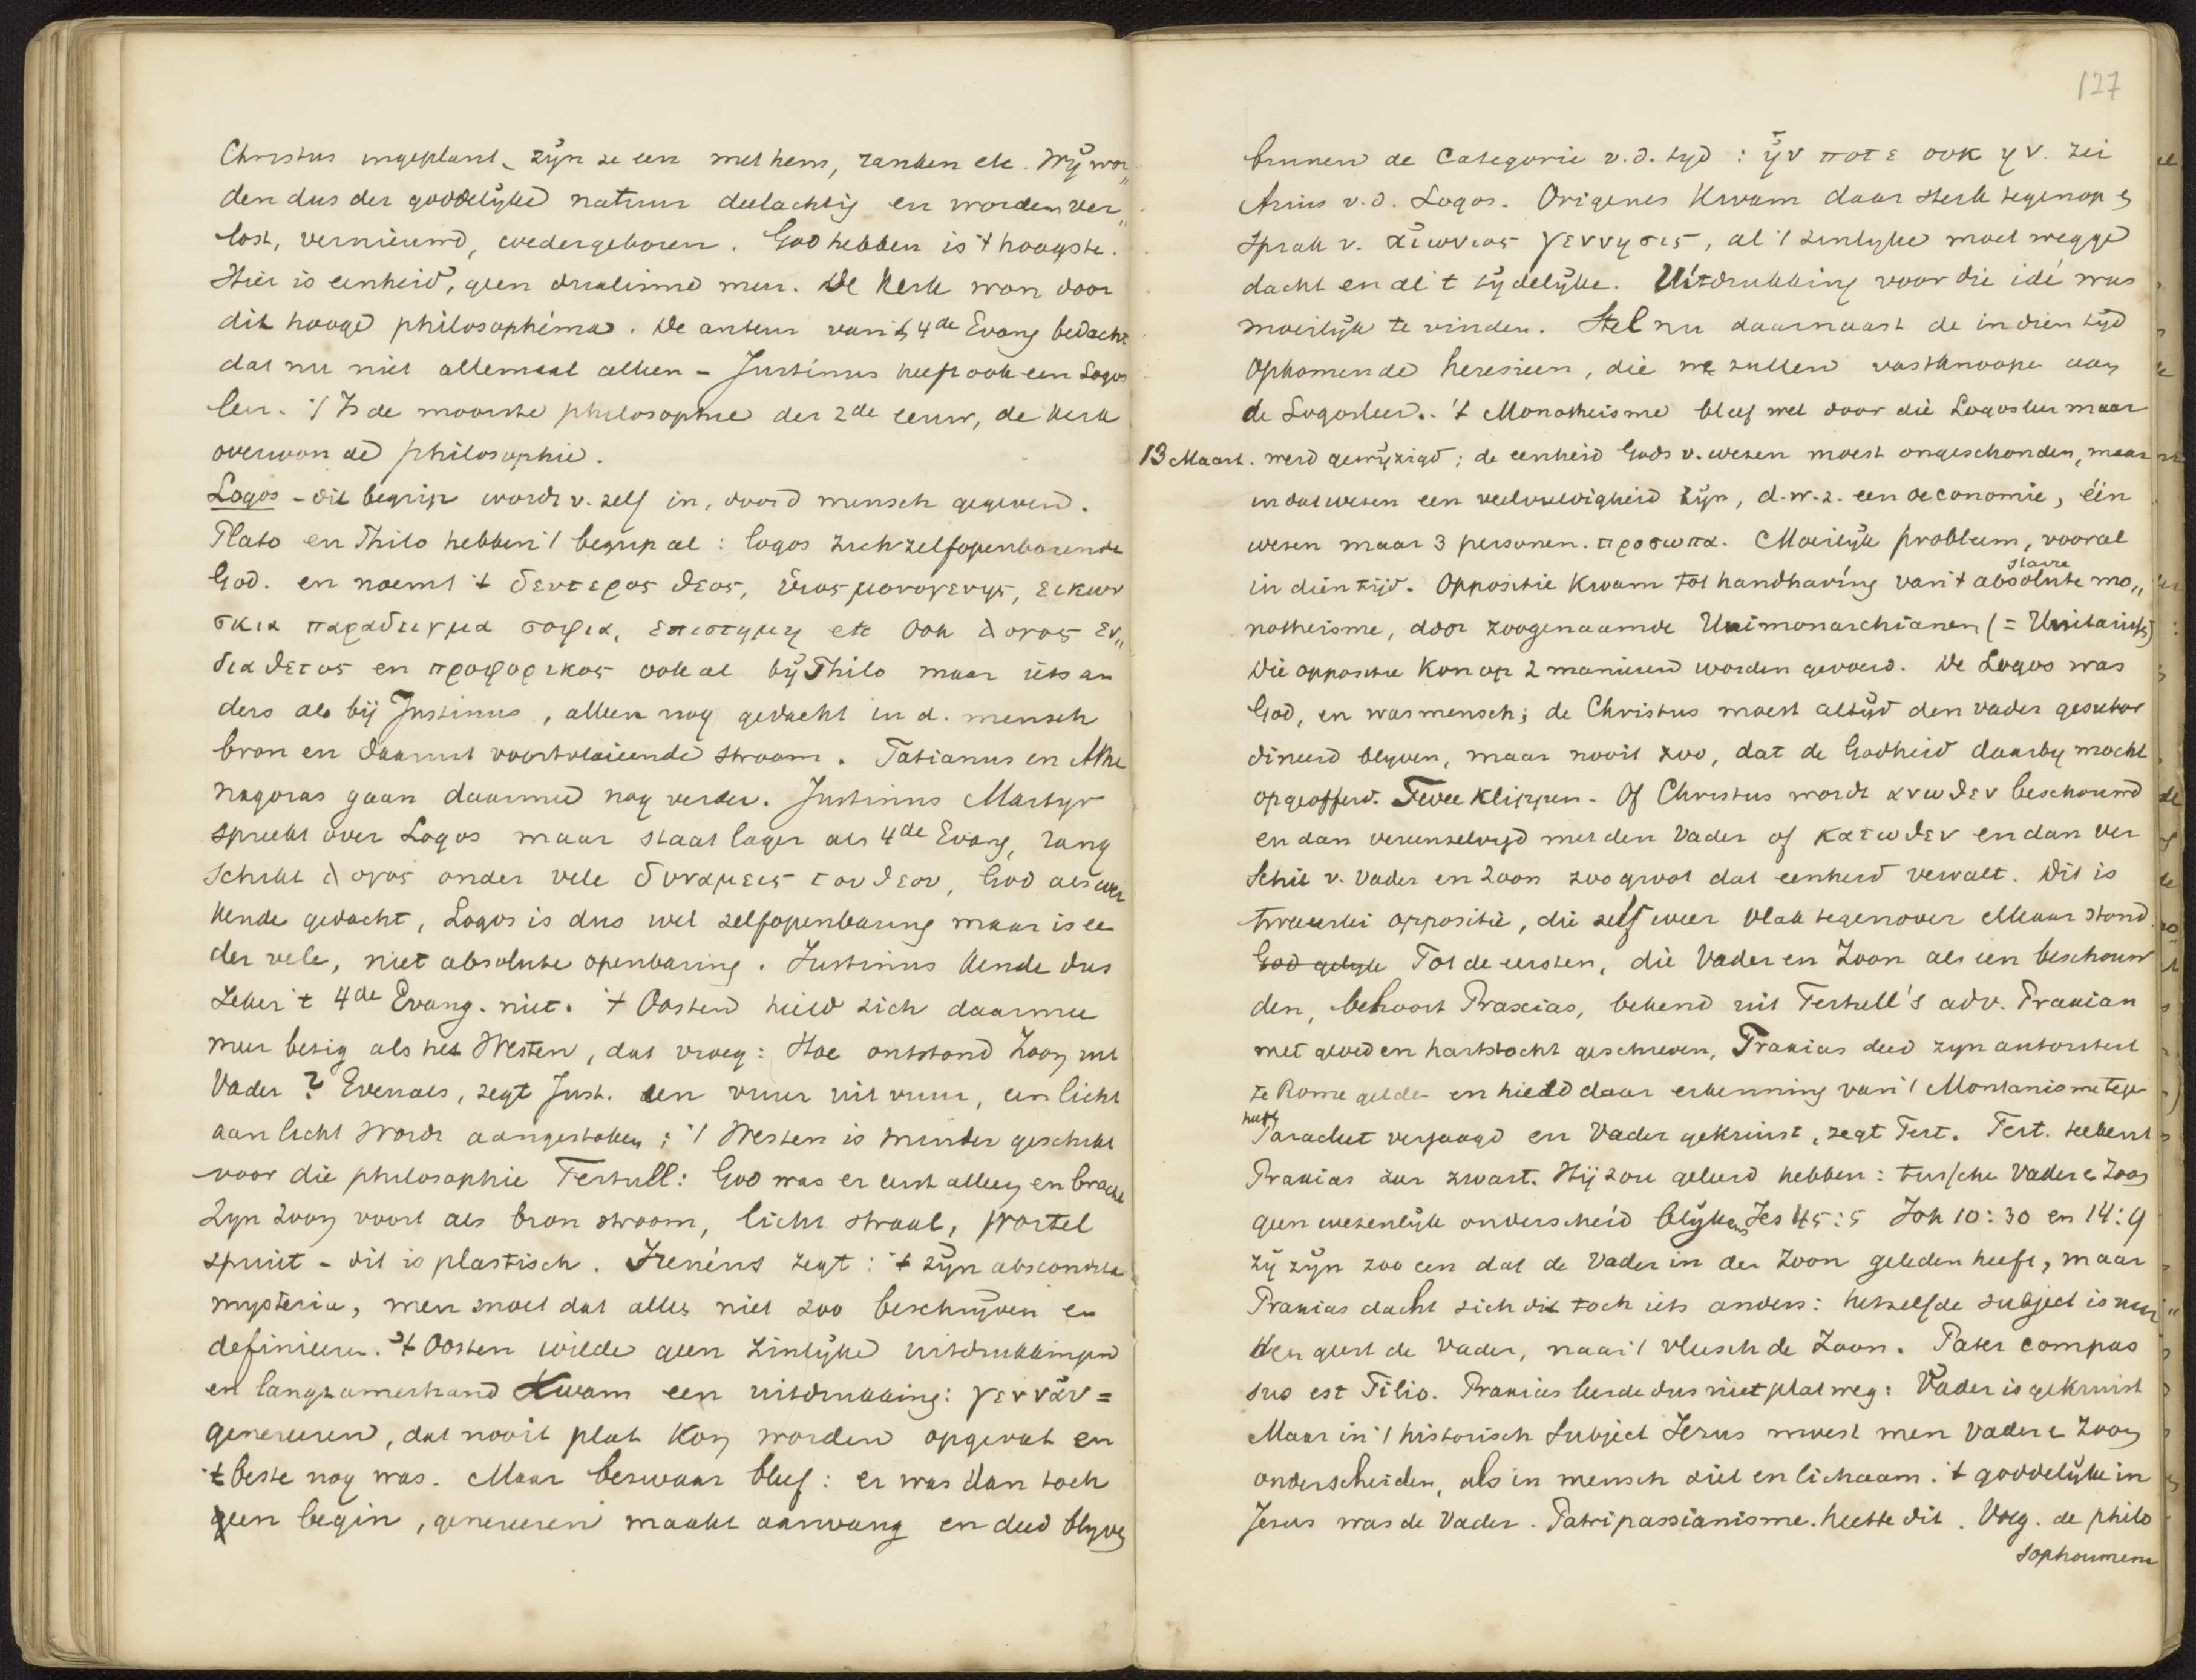 Christus ingeplant, zijn ze een met hem, ranken etc. Wij wor„
den dus der goddelijke natuur deelachtig en worden ver„
lost, vernieuwd, wedergeboren. God hebben is 't hoogste.
Hier is eenheid, geen dualisme meer. De Kerk won door
dit hooge philosophéma. De auteur van 't 4de Evang bedacht
dat nu niet allemaal alleen – Justinus heeft ook een Logos
leer. 't Is de mooiste philosophie der 2de eeuw, de Kerk
overwon de philosophie.
Logos – dit begrip wordt v. zelf in, door d mensch gegeven.
Plato en Philo hebben 't begrip al: logos zich zelfopenbarende
God. en noemt 't δευτερος θεος, υἱος μονογενης, εικων
σκια παραδειγμα σοφια, επιστημη etc Ook λογος εν„
διαθετος en προφορικος ook al bij Philo maar iets an
ders als bij Justinus, alleen nog gedacht in d. mensch
bron en daaruit voortvloeiende stroom. Tatianus en Athe
nagoras gaan daarmee nog verder. Justinus Martyr
spreekt over Logos maar staat lager als 4de Evang, rang
schikt λογος onder vele δυναμεις του θεου, God als wer
kende gedacht, Logos is dus wel zelfopenbaring maar is ee
der vele, niet absolute openbaring. Justinus kende dus
zeker 't 4de Evang. niet. 't Oosten hield zich daarmee
meer bezig als het Westen, dat vroeg: Hoe ontstond Zoon uit
Vader? Evenals, zegt Just. een vuur uit vuur, een licht
aan licht wordt aangestoken; 't Westen is minder geschikt
voor die philosophie Tertull: God was er eerst alleen en bracht
Zijn Zoon voort als bron stroom, licht straal, wortel
spruit – dit is plastisch. Irenéus zegt: 't zijn abscondita
mysteria, men moet dat alles niet zoo beschrijven en
definieeren. 't Oosten wilde geen zinlijke uitdrukkingen
en langzamerhand kwam een uitdrukking: γεννᾶν =
genereeren, dat nooit plat kon worden opgevat en
't beste nog was. Maar bezwaar bleef: er was dan toch
geen begin, genereeren maakt aanvang en deed blijven
127
binnen de Categorie v.d. tyd: ἦν ποτε οὐκ ην. zei
Arius v.d. Logos. Origenes kwam daar sterk tegenop en
sprak v. αἰωνιος γεννησις, al 't zinlyke moet wegge
dacht en al 't tijdelijke. Uitdrukking voor die idé was
moeilijk te vinden. Stel nu daarnaast de in dien tijd
opkomende heresieen, die we zullen vastknoopen aan
de Logosleer. 't Monotheisme bleef wel door die Logosleer maar
13 Maart. werd gewijzigd; de eenheid Gods v. wezen moest ongeschonden, maar
in dat wezen een veelvuldigheid zijn, d.w.z. een oeconomie, één
wezen maar 3 personen. προσωπα. Moeilijk probleem, vooral
in dien tijd. Oppositie kwam tot handhaving van 't absolute starre mo„
notheisme, door zoogenaamde Unimonarchianen (= Unitariers)
Die oppositie kon op 2 manieren worden gevoerd. De Logos was
God, en was mensch; de Christus moest altijd den vader gesubor
dineerd blyven, maar nooit zoo, dat de Godheid daarby mocht
opgeofferd. Twee klippen. Of Christus wordt ανωθεν beschouwd
en dan vereenzelvigd met den Vader of κατωθεν en dan ver
schil v. Vader en Zoon zoo groot dat eenheid vervalt. Dit is
tweeerlei oppositie, die zelf weer vlak tegenover elkaar stond.
God gelijk Tot de eersten, die Vader en Zoon als een beschouw
den, behoort Praxias, bekend uit Tertull's adv. Praxian
met gloed en hartstocht geschreven, Praxias deed zyn autoriteit
te Rome gelden en hield daar erkenning van 't Montanisme tegen
heeft Paracleet verjaagd en Vader gekruist, zegt Tert. Tert. teekent
Praxias zeer zwart. Hij zou geleerd hebben: tusschen Vader en Zoon
geen wezenlijk onderscheid blijkens Jes 45:5 Joh 10:30 en 14:9
zij zijn zoo een dat de Vader in den Zoon geleden heeft, maar
Praxias dacht zich dit toch iets anders: hetzelfde subject is naar
den geest de Vader, naar 't vleesch de Zoon. Pater compas
sus est Filio. Praxias leerde dus niet plat weg: Vader is gekruist
Maar in 't historisch subject Jezus moest men Vader en Zoon
onderscheiden, als in mensch ziel en lichaam. 't goddelijke in
Jesus was de Vader. Patripassianisme heette dit. Voeg. de philo
sophoumena